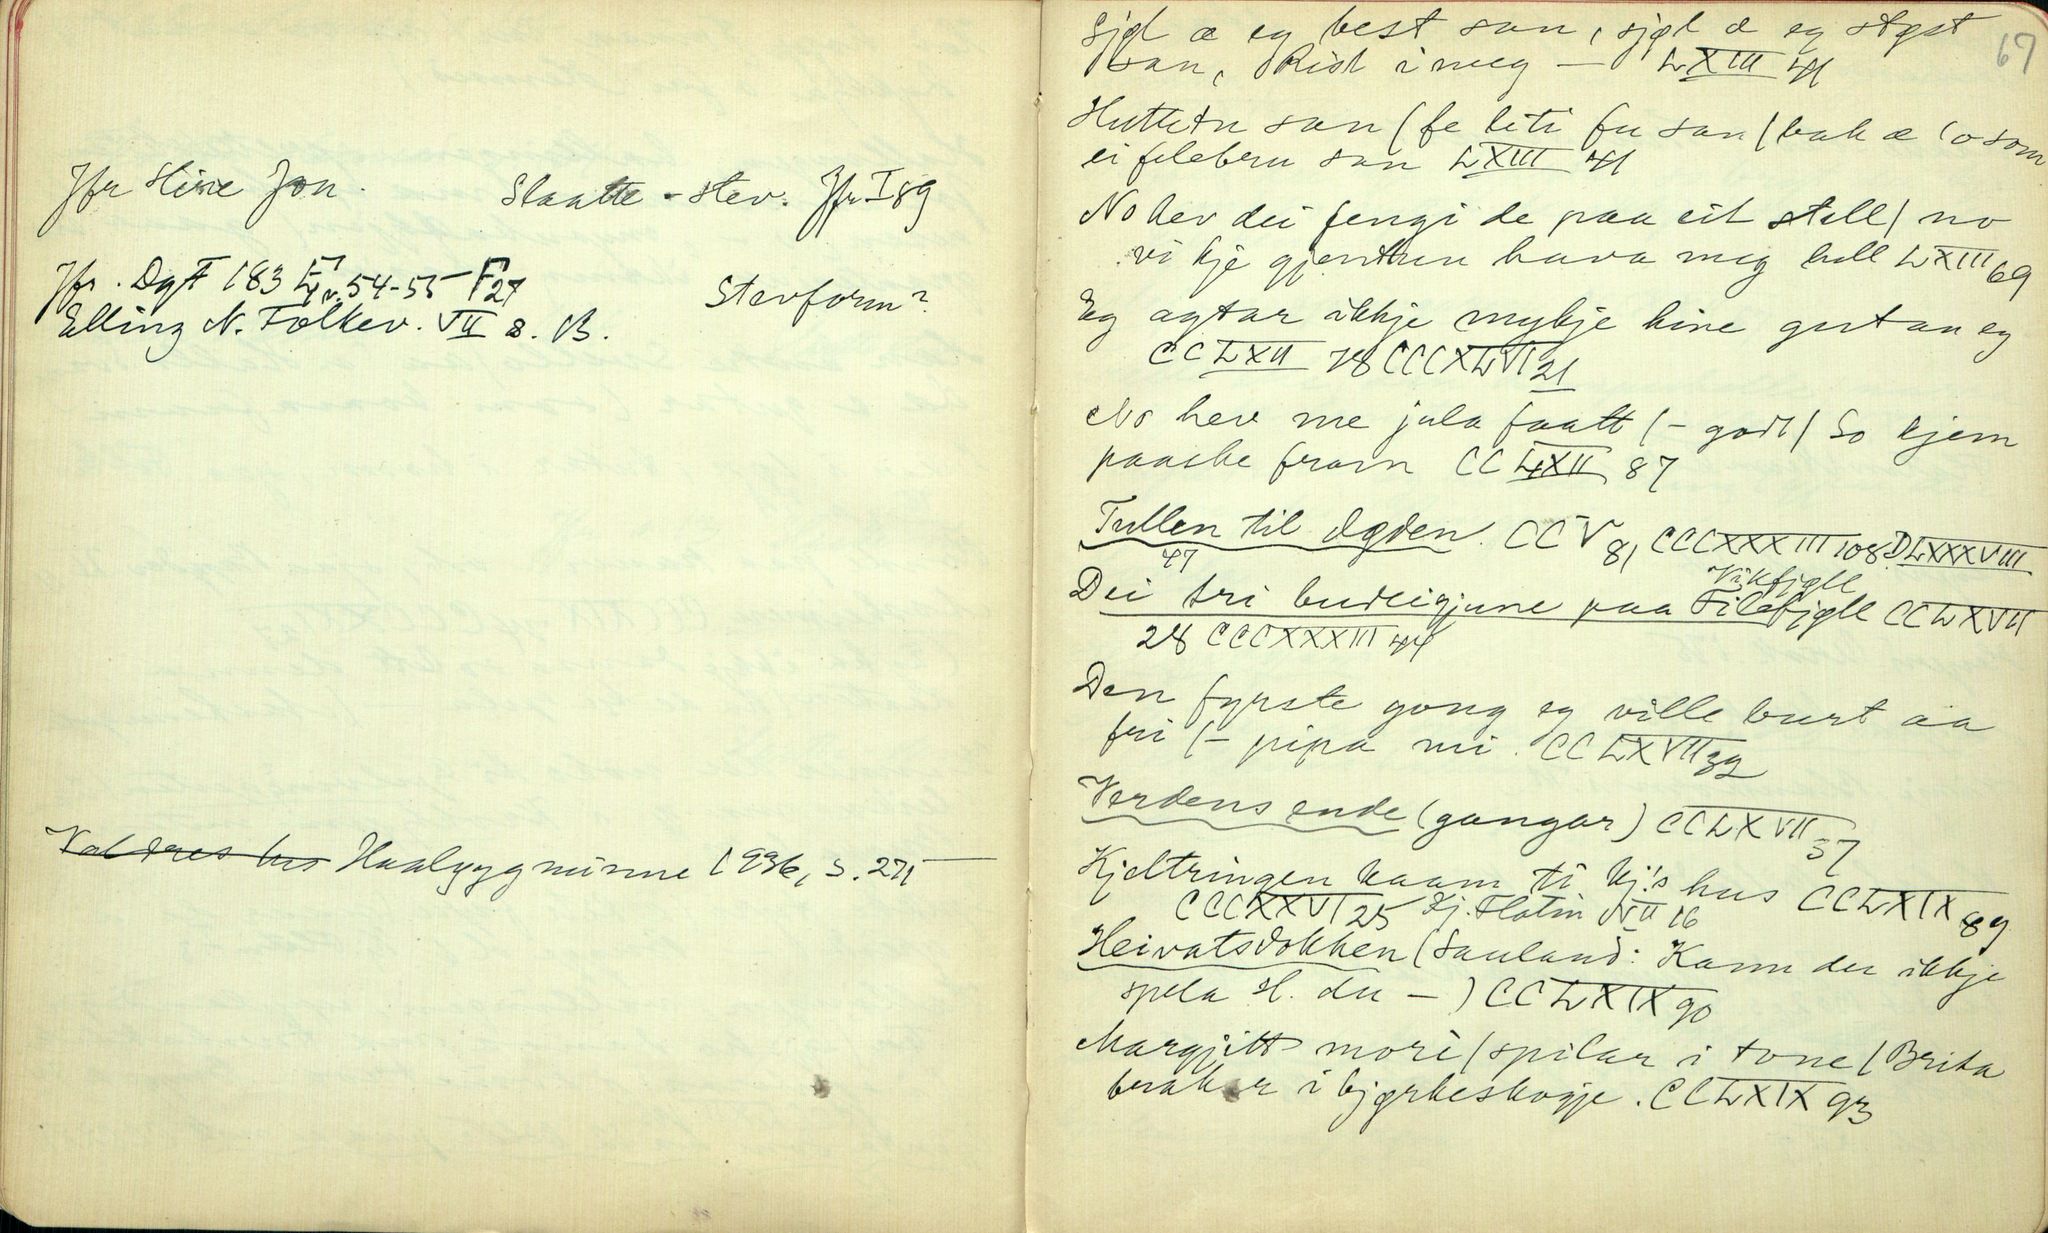 Jfr Hine Jon. Slaatte-stev. Jfr I 89
Jfr. Dgf 183 E v. 54-55 F 27
Elling N. Folkev. VII s. 13. Stevform?
Valdres hus Hallyggminne 1936, s. 271
67
Sjøl æ eg best son, sjøl æ eg størst
son, Rist i meg — LXIII 41
Huttetu son (fe liti fu son / bak æ lo som
ei felebru son LXIII 41
No hev dei fengi de paa eit stell / no
vi kje gjentun hava meg hell LXIII 69
Eg agtar ikkje mykje hine gutan eg
CCLXII 78 CCCXLVI 21
No hev me jula faatt (– godt / So kjem
paaske fram CCLXII 87
Tullen til Døden. CCV 81, CCCXXXIII 108. DLXXXVIII
47
Vikfjøll
Dei tri budeigjune paa Filefjøll CCLXVII
28 CCCXXXIII 44
Den fyrste gong eg ville burt aa
fri (– pipa mi. CCLXVII 32
Verdens ende (gangar) CCLXVII 37
Kjeltringen kaam ti kj's hus CCLXIX 89
CCCXXVI 25 Kj. Flatin VII 16
Heivatsdokken (Sauland: Kann du ikkje
spela H. du –) CCLXIX 90
Margjitt mori / spilar i tone / Brita
braker i bjørkeskogje. CCLXIX 93